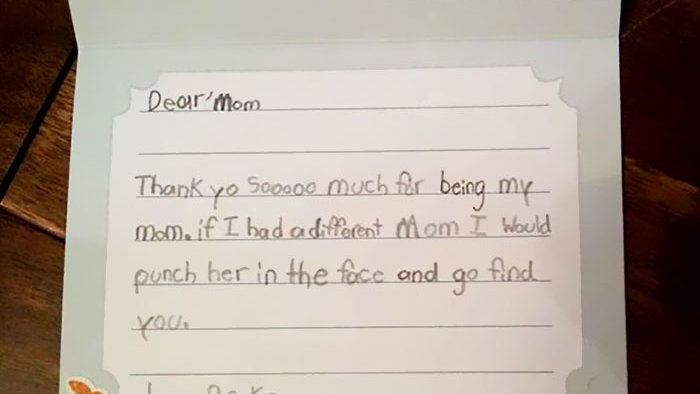 Dear Mom
Thank yo Sooooo much for being my
mom. if I had a different Mom I Would
punch her in the face and go find
you.